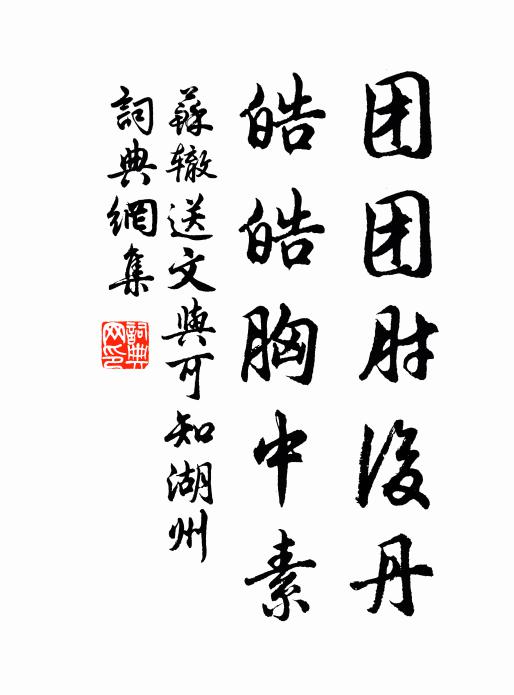 团团肘後丹
皓皓胸中素
蘇辙送文與可知湖州
詞典網集
詞典网印